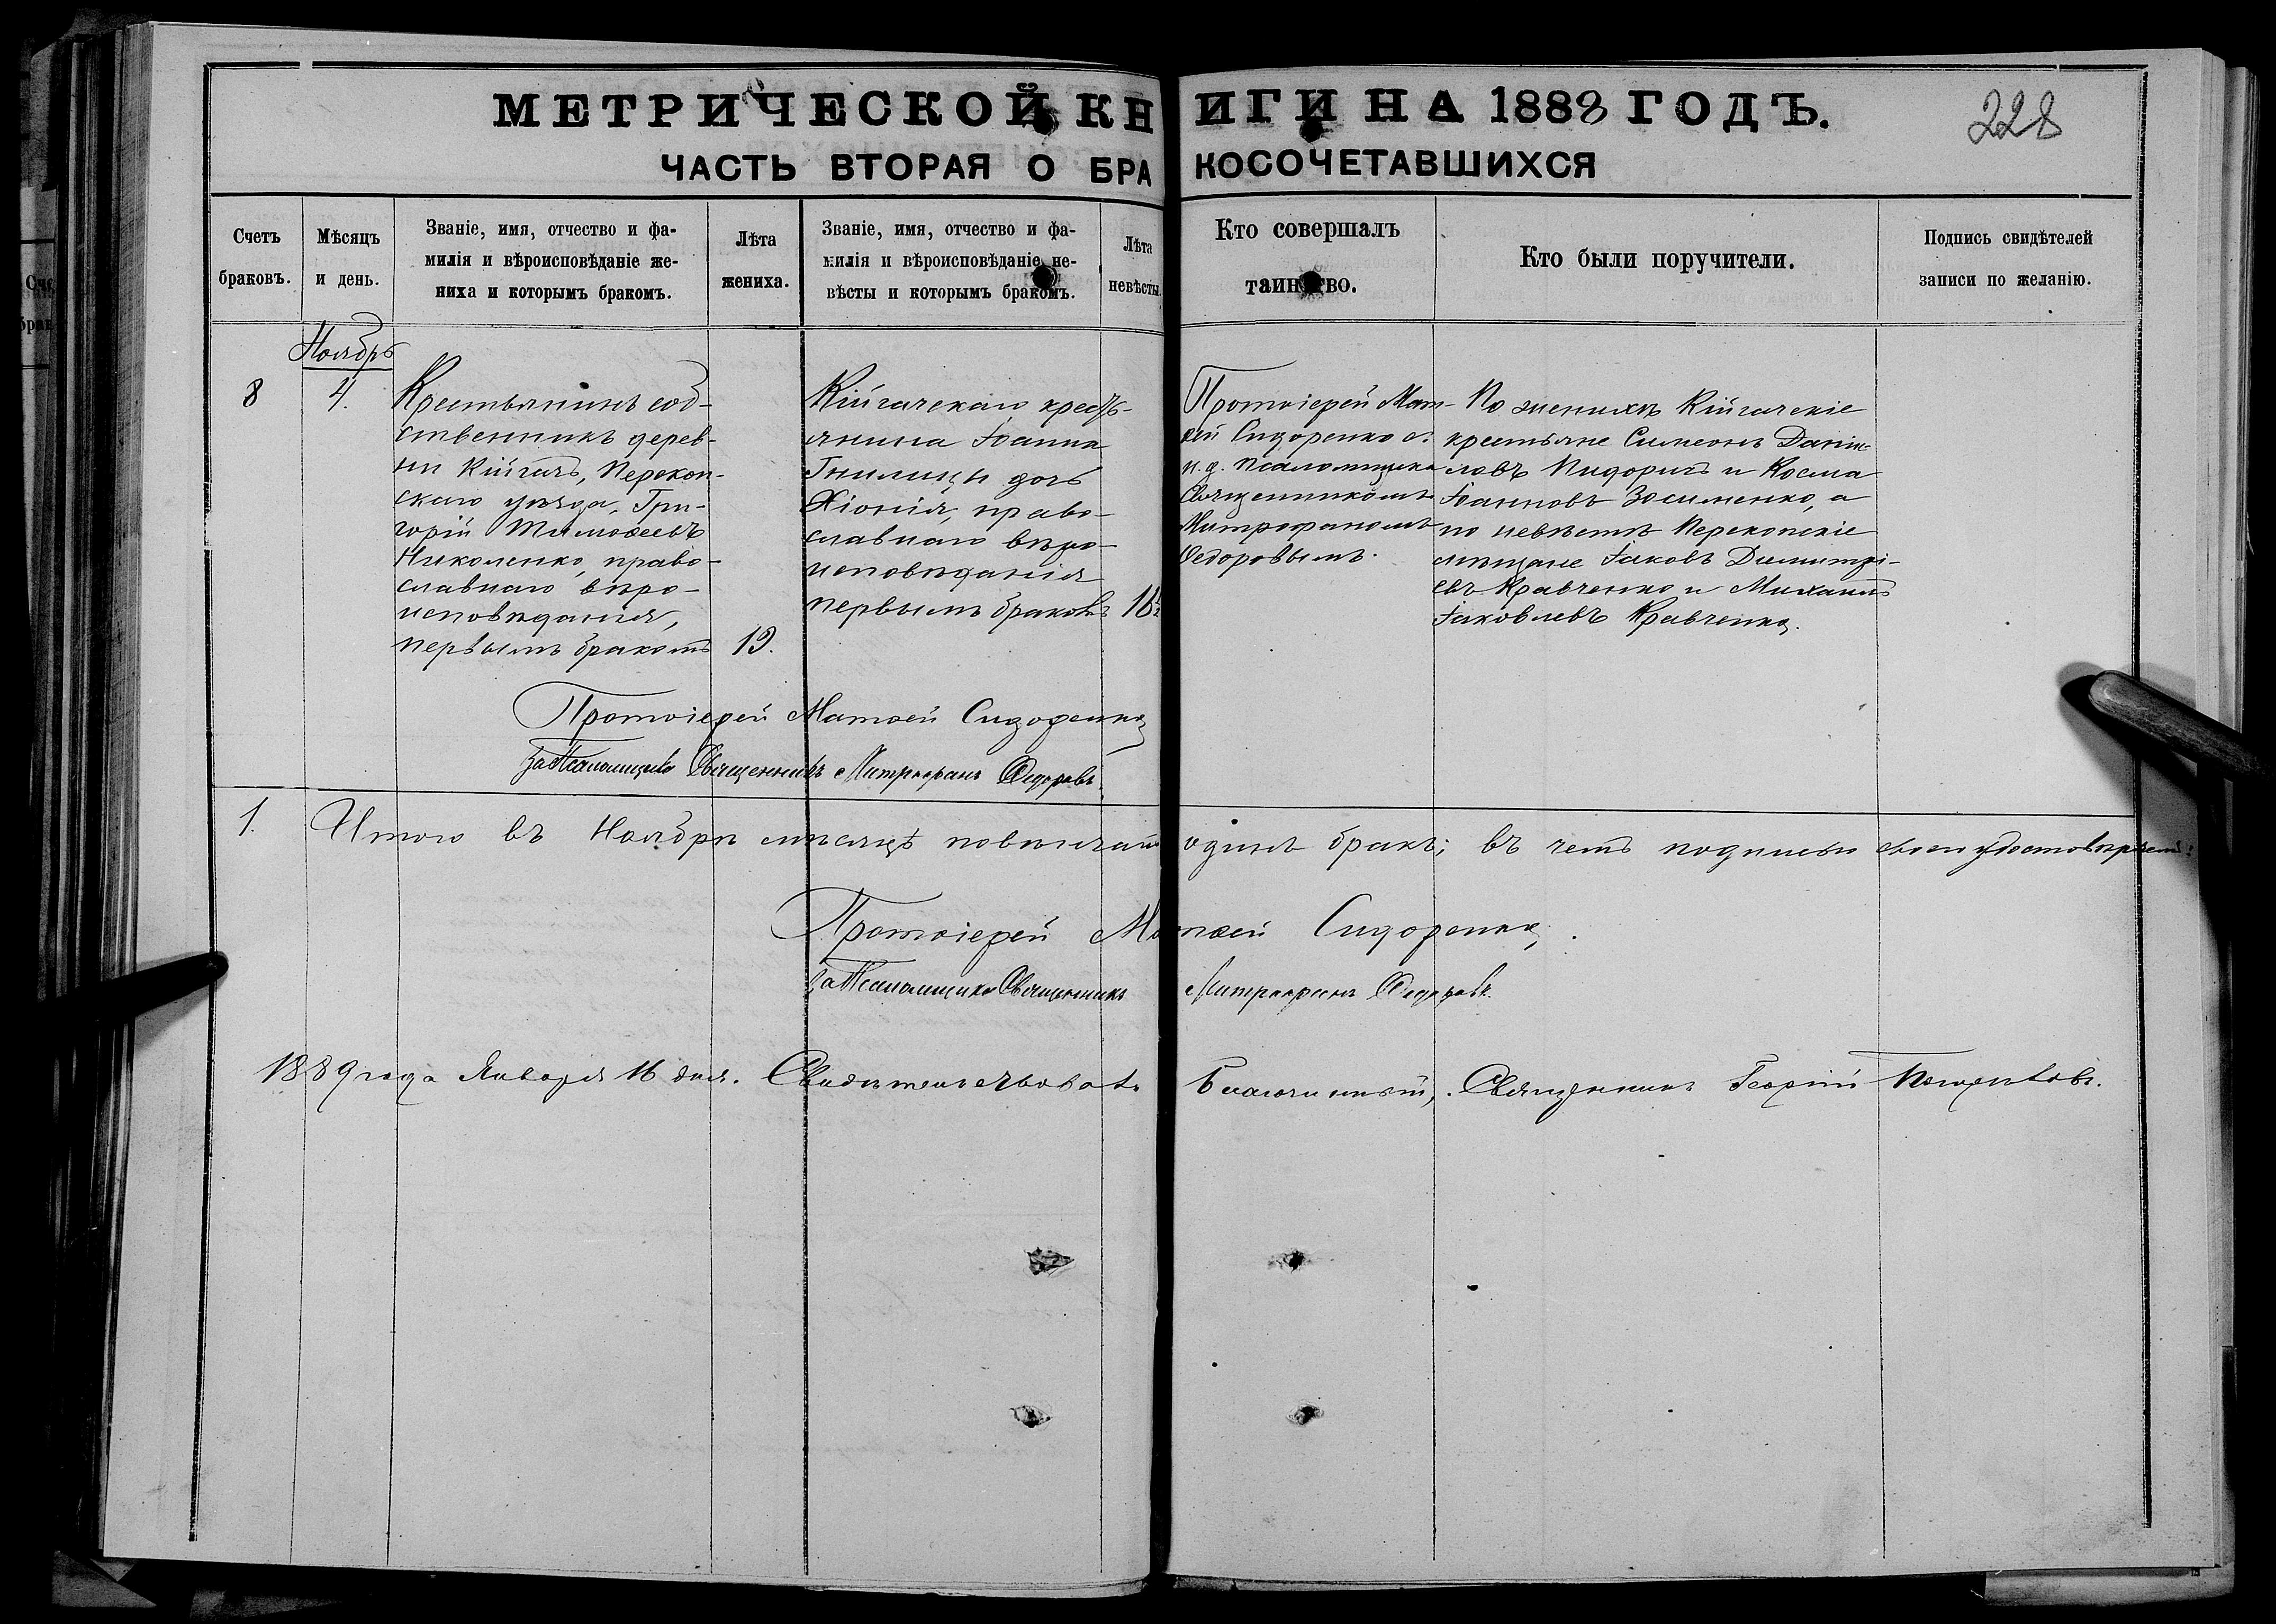 МЕТРИЧЕСКОЙ КНИГИ НА 1888 ГОДЪ.
228
ЧАСТЬ ВТОРАЯ О БРАКОСОЧЕТАВШИХСЯ
Счетъ браковъ.
Мѣсяцъ и день.
Званіе, имя, отчество и фа-
милія и вѣроисповѣданіе же-
ниха и которымъ бракомъ.
Лѣта жениха.
Званіе, имя, отчество и фа-
милія и вѣроисповѣданіе не-
вѣсты и которымъ бракомъ.
Лѣта невѣсты.
Кто совершалъ
таинство.
Кто были поручители.
Подпись свидѣтелей
записи по желанію.
Ноябрь
8
4.
Крестьянинъ соб-
ственникъ дерев-
ни Кійгачъ, Перекоп-
скаго уѣзда, Гри-
горій Тимоѳеевъ
Николенко, право-
славнаго вѣро-
исповѣданія,
первымъ бракомъ
19.
Кійгачскаго кресть-
янина Іоанна
Гнилицы дочь
Хіонія, право-
славнаго вѣро-
исповѣданія
первымъ бракомъ
16½
Протоіерей Мат-
ѳей Сидоренко съ
и. д. псаломщика
Священникомъ
Митрофаномъ
Ѳедоровымъ.
По женихѣ Кійгачскіе
крестьяне Симеонъ Даніи-
ловъ Пидоричъ и Косма
Іоанновъ Зосименко, а
по невѣстѣ Перекопскіе
мѣщане Іаковъ Димитрі-
евъ Кравченко и Михаилъ
Іаковлевъ Кравченко.
Протоіерей Матѳей Сидоренко
За Псаломщика Священникъ Митрофанъ Ѳедоровъ.
1. Итого въ Ноябрѣ мѣсяцѣ повѣнчанъ одинъ бракъ; въ чемъ подписью своею удостовѣряемъ:
Протоіерей Матѳей Сидоренко.
За Псаломщика Священникъ Митрофанъ Ѳедоровъ.
1889 года Января 16 дня. Свидѣтельствовалъ Благочинный, Священникъ Георгій